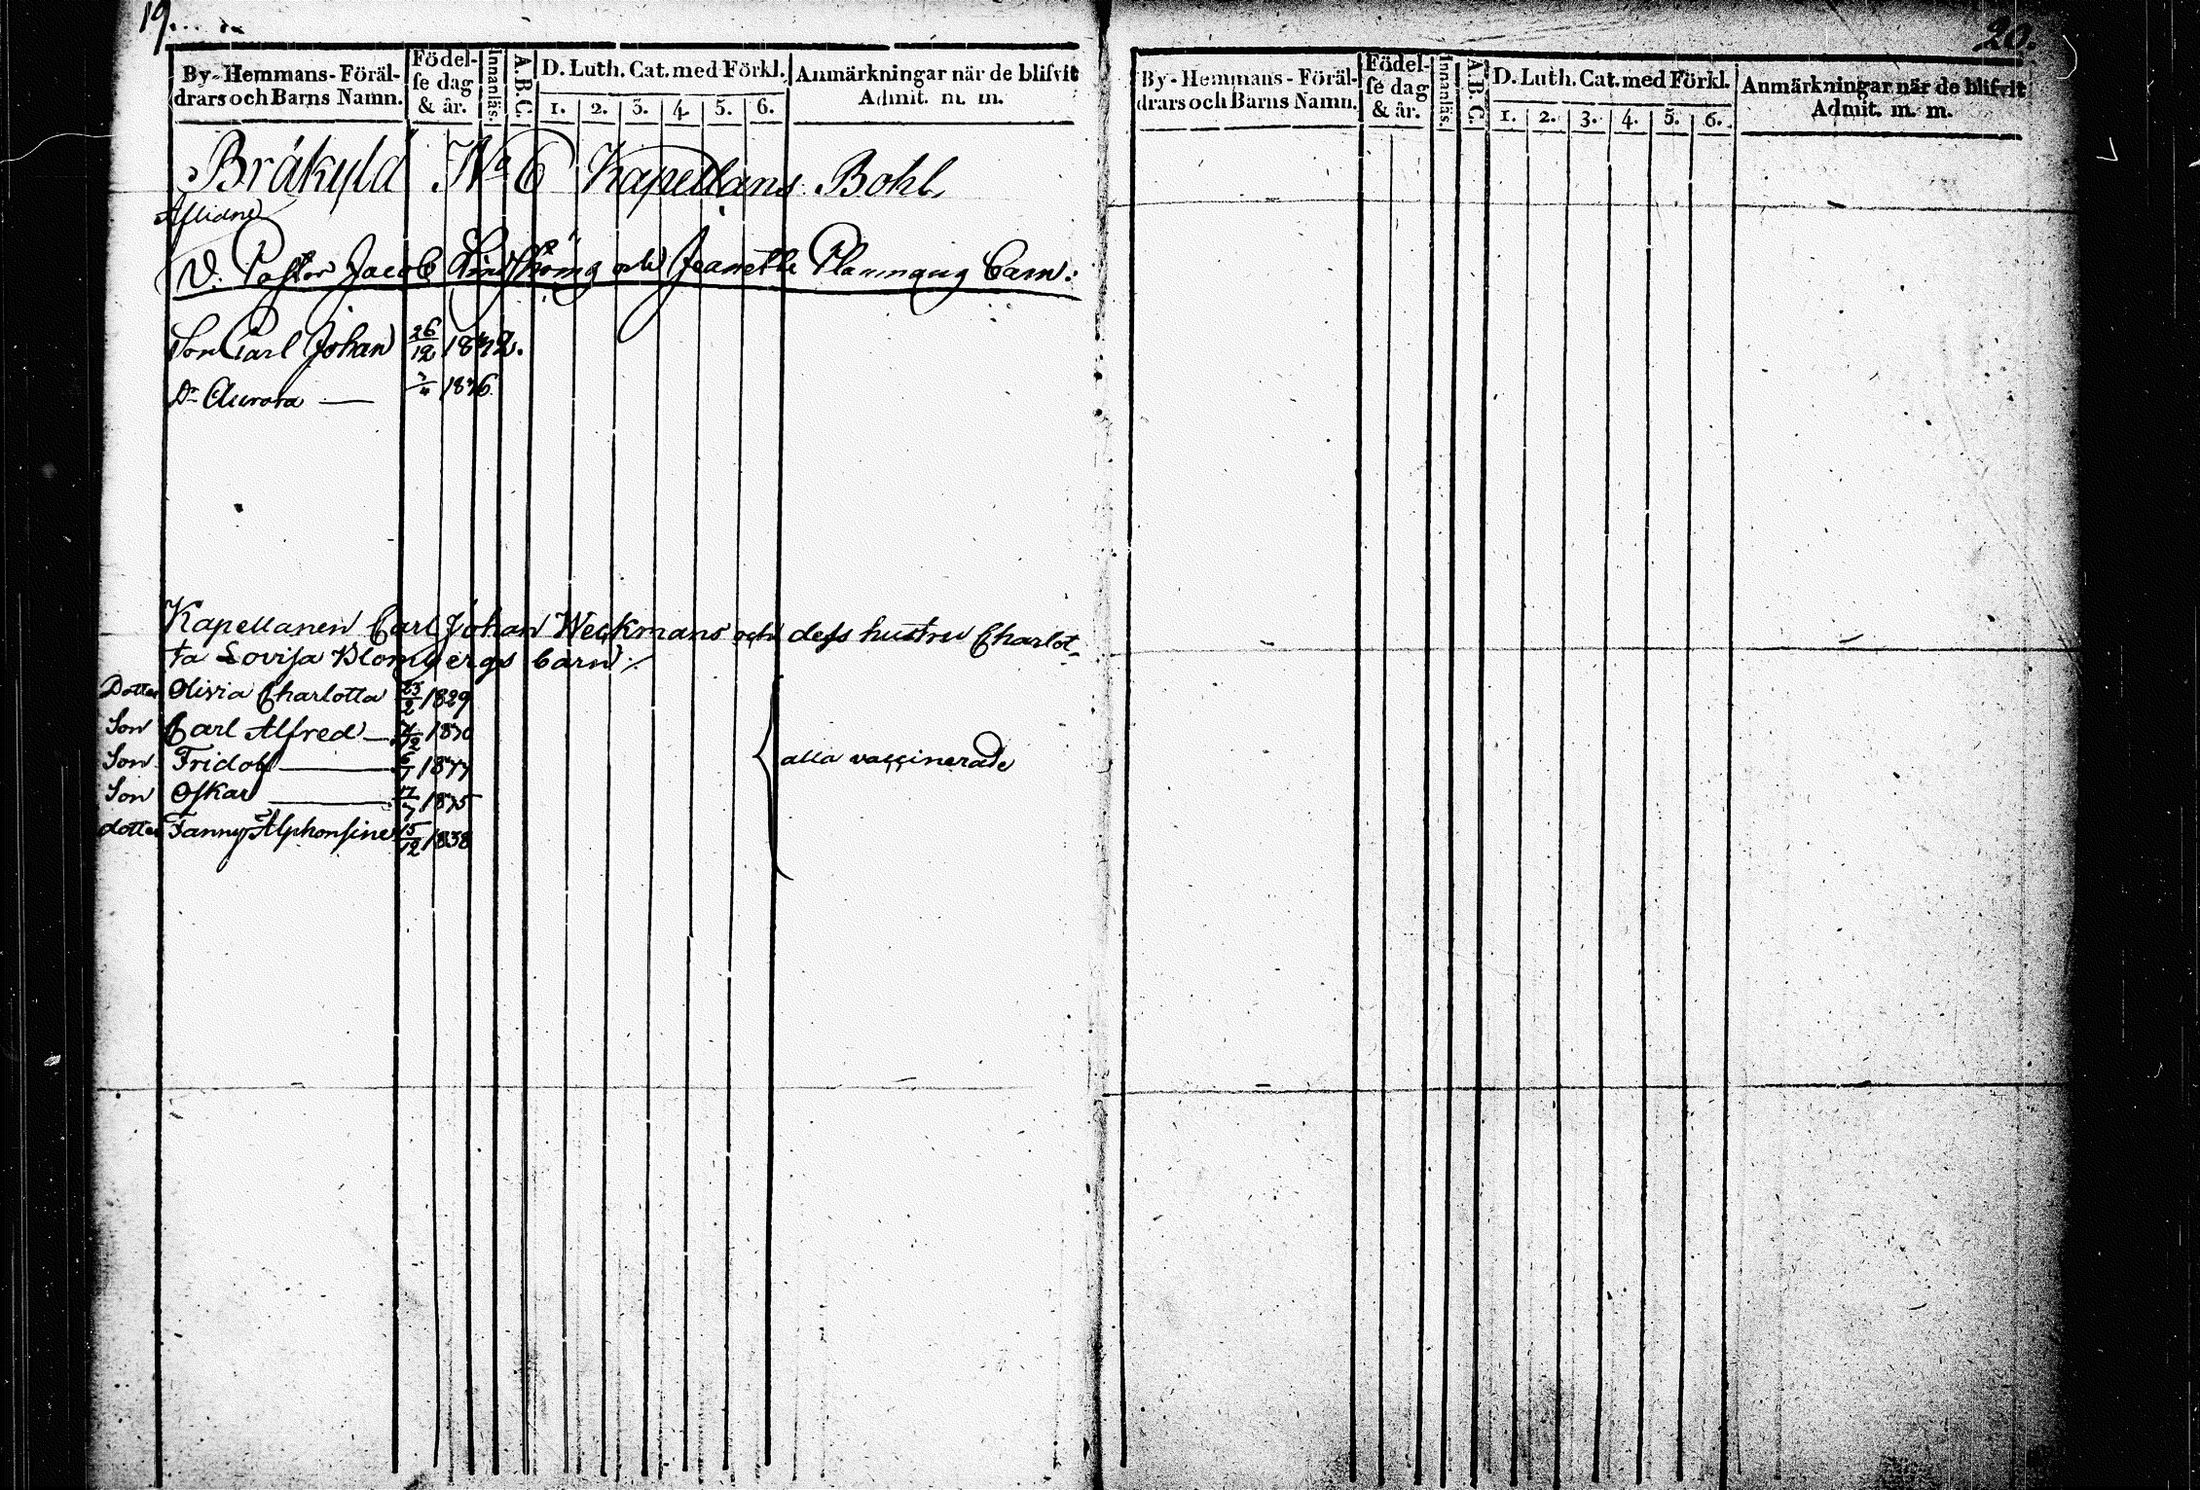 19.
By-Hemmans-Föräl-
drars och Barns Namn.
Födel-
se dag
& år.
Innanläs.
A.B.C.
D. Luth. Cat. med Förkl.
1. 2. 3. 4. 5. 6.
Anmärkningar när de blifvit
Admit. m. m.
Bråkyla No 6 Kapellans Bohl.
Aflidne
V. Pastor Jacob och Jeanette Barn:
Son Carl Johan 26/12 1832.
Dr Aurora — 1836.
Kapellanen Carl Johan Weckmans och dess hustru Charlot-
ta Lovisa Blombergs barn
Dotter Olivia Charlotta 23/2 1829
Son Carl Alfred — 1830
Son Fridolf — 1833
alla vaccinerade
Son Oskar — 17/7 1835
dotter Fanny Alphonsine 15/12 1838
20.
By-Hemmans-Föräl-
drars och Barns Namn.
Födel-
se dag
& år.
Innanläs.
A.B.C.
D. Luth. Cat. med Förkl.
1. 2. 3. 4. 5. 6.
Anmärkningar när de blifvit
Admit. m. m.